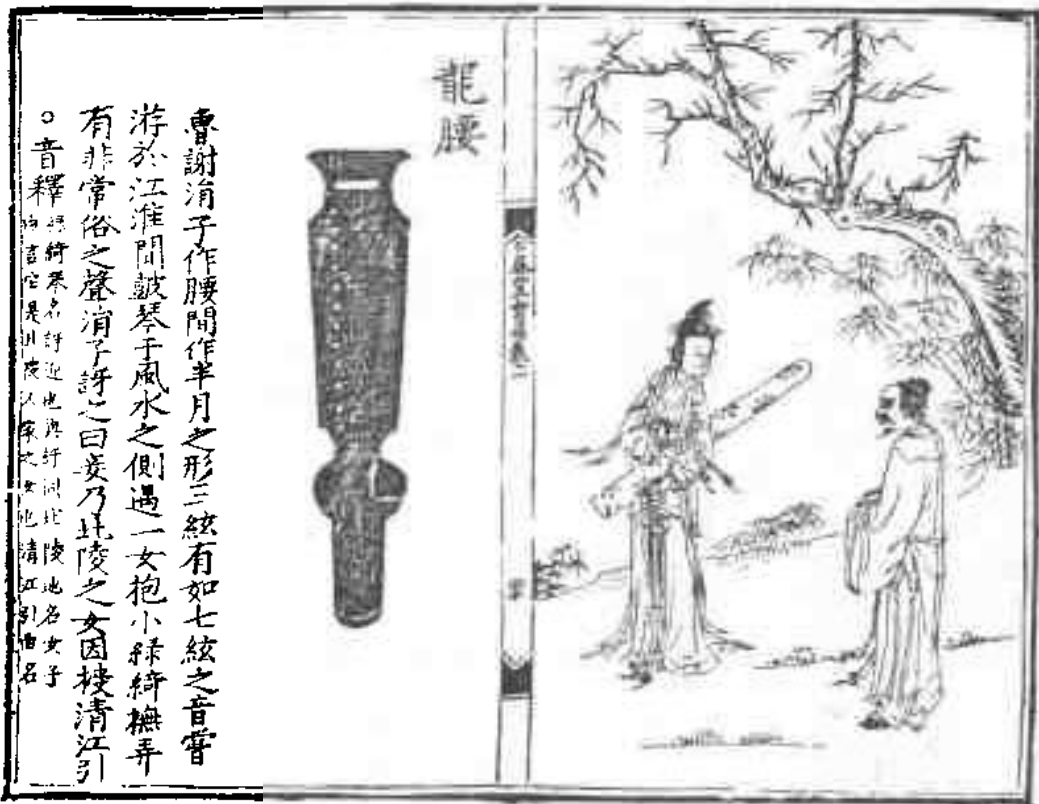 龍腰
曹謝涓子作腰間作半月之形三絃有如七絃之音嘗
游於江淮間皷琴于風水之側遇一女抱小綠綺撫弄
有非常俗之聲涓子訝之曰妾乃毗陵之女因授清江引
○音釋
綠綺琴名訝迎也與迓同毗陵地名女子
自言它是毗陵人家之女也清江引曲名